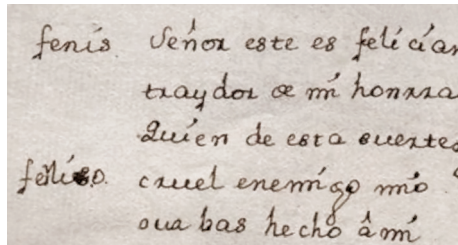 fenis Señor este es felicían
traydor de mí honrra
Quíen de esta suertes
felíso. cruel enemígo mío
has hecho â mí